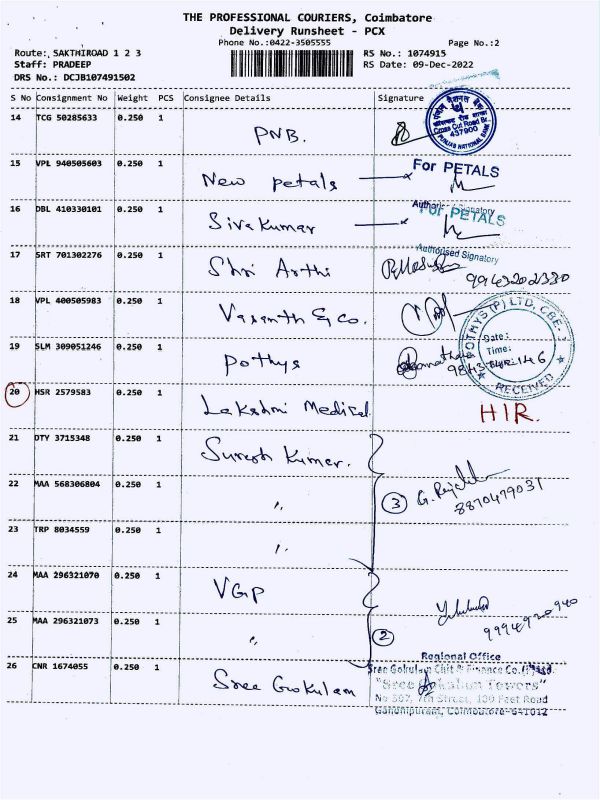 THE PROFESSIONAL COURIERS, Coimbatore
Delivery Runsheet - PCX
Phone No.:0422-3505555
Page No.:2
Route: SAKTHIROAD 1 2 3
RS No.: 1074915
Staff: PRADEEP
RS Date: 09-Dec-2022
DRS No.: DCJB107491502
S No Consignment No Weight PCS Consignee Details Signature
14 TCG 50285633 0.250 1 PNB.
Cross Cut Road Br.
437900
PUNJAB NATIONAL BANK
15 VPL 940505603 0.250 1 New petals
For PETALS
Authorised Signatory
16 DBL 410330101 0.250 1 Sivakumar
For PETALS
Authorised Signatory
17 SRT 701302276 0.250 1 Shri Arthi
9943202330
18 VPL 400505983 0.250 1 Vasanth & Co.
19 SLM 309051246 0.250 1 Pothys
POTHYS (P) LTD, CBE-
Date:
Time:
RECEIVED
20 HSR 2579583 0.250 1 Lakshmi Medical
HIR.
21 DTY 3715348 0.250 1 Suresh Kumar.
22 MAA 568306804 0.250 1 "
3
8870479031
23 TRP 8034559 0.250 1 "
24 MAA 296321070 0.250 1 VGP
9994920940
25 MAA 296321073 0.250 1 "
2
26 CNR 1674055 0.250 1 Sree Gokulam
Regional Office
Sree Gokulam Chit & Finance Co.(P) Ltd.
"Sree Gokulam Towers"
No 307, 7th Street, 100 Feet Road
Gandhipuram, Coimbatore-641012